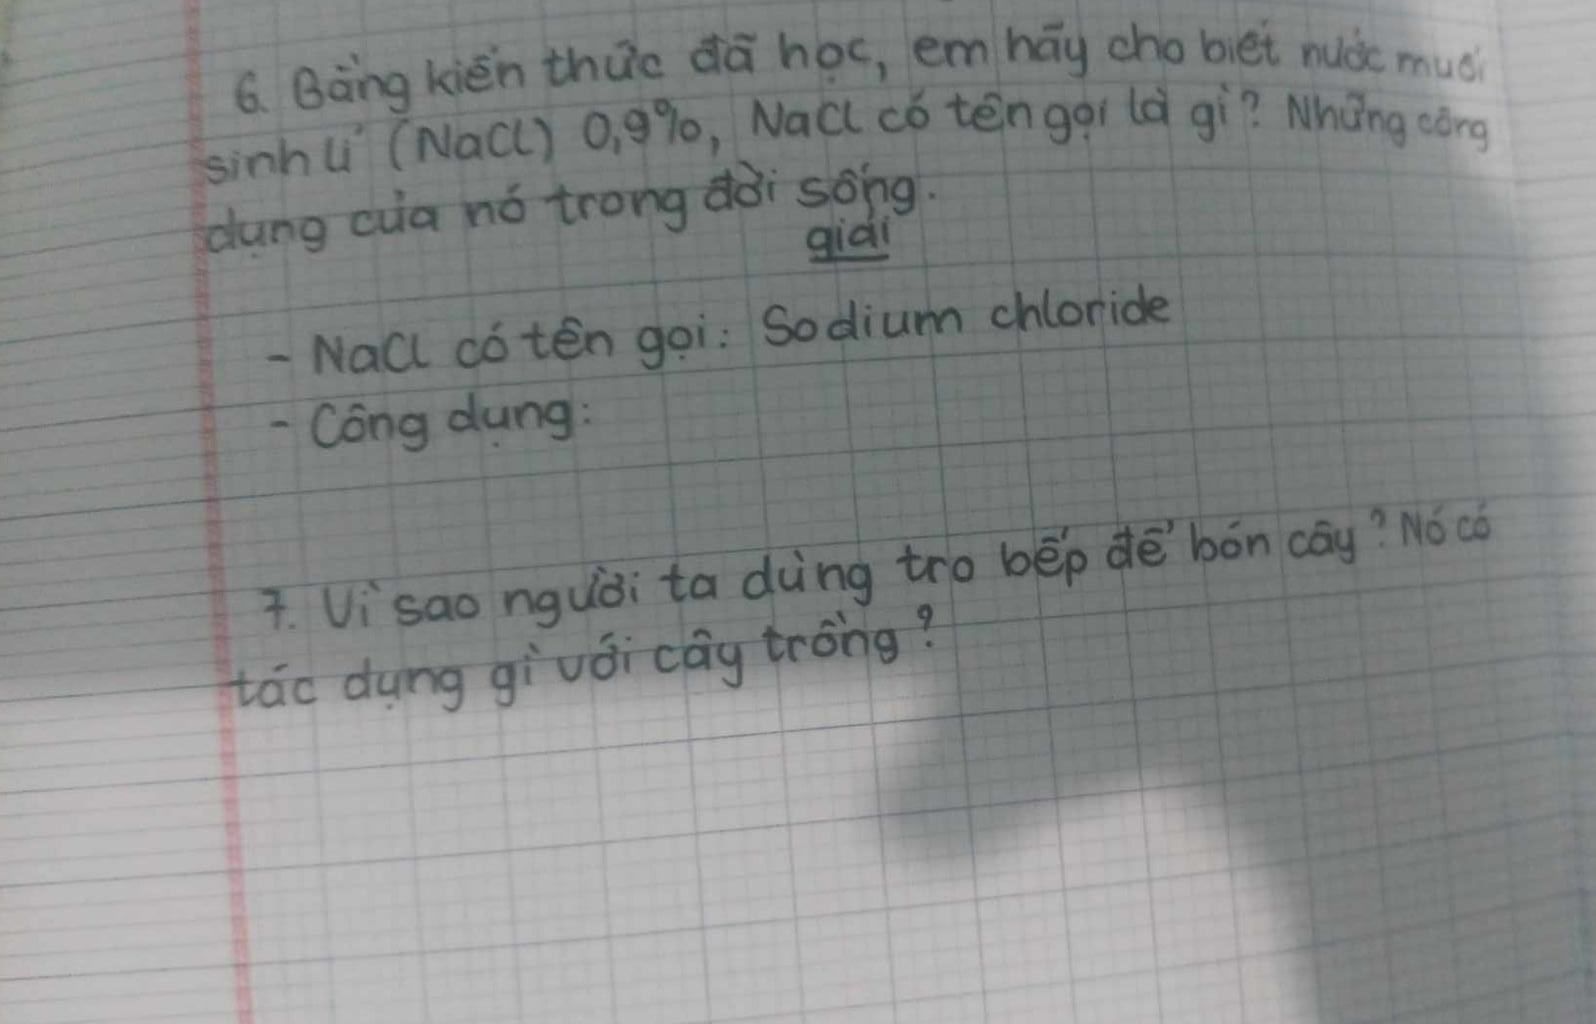 6. Bằng kiến thức đã học, em hãy cho biết nước muối
sinh lí (NaCl) 0,9%, NaCl có tên gọi là gì? Những công
dụng của nó trong đời sống.
giải
- NaCl có tên gọi: Sodium chloride
- Công dụng:
7. Vì sao người ta dùng tro bếp để bón cây? Nó có
tác dụng gì với cây trồng?